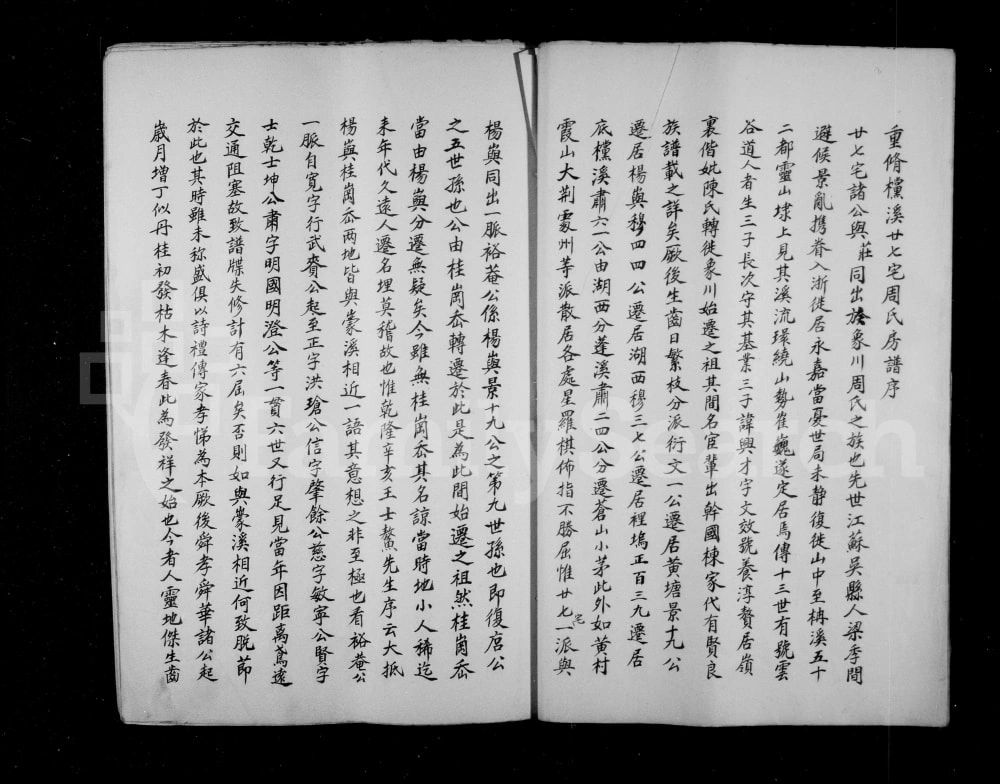 重脩檯溪廿七宅周氏房譜序
廿七宅諸公與莊同出於象川周氏之族也先世江蘇吳縣人梁季間
避侯景亂携眷入浙徙居永嘉當憂世局未静復徙山中至枬溪五十
二都靈山埭上見其溪流環繞山勢崔巍遂定居焉傳十三世有號雲
谷道人者生三子長次守其基業三子諱興才字文效號養淳贅居嶺
裏偕妣陳氏轉徙象川始遷之祖其間名宦輩出幹國棟家代有賢良
族譜載之詳矣厥後生齒日繁枝分派衍文一公遷居黄塘景十九公
遷居楊嶴穆四四公遷居湖西穆三七公遷居裡塢正百三九遷居
底檯溪肅六一公由湖西分蓬溪肅二四公分遷蒼山小茅此外如黄村
霞山大荆處州等派散居各處星羅棋佈指不勝屈惟廿七宅一派與
楊嶴同出一脈裕菴公係楊嶴景十九公之第九世孫也即復㝛公
之五世孫也公由桂崗岙轉遷於此是為此間始遷之祖然桂崗岙
當由楊嶴分遷無疑矣今雖無桂崗岙其名諒當時地小人稀迄
未年代久遠人遷名埋莫稽故也惟乾隆辛亥王士鰲先生序云大抵
楊嶴與桂崗岙两地皆與蒙溪相近一語其意想之非至極也看裕菴公
一脈自寬字行武賚公起至正字洪瑲公信字肇餘公慈字敏寧公賢字
士乾士坤公肅字明國明澄公等一貫六世又行足見當年因距萬鳶遠
交通阻塞故致譜牒失修計有六屆矣否則如與蒙溪相近何致脱節
於此也其時雖未称盛俱以詩禮傳家孝悌為本厥後舜孝舜華諸公起
嵗月增丁似丹桂初發枯木逢春此為發祥之始也今者人靈地傑生齒